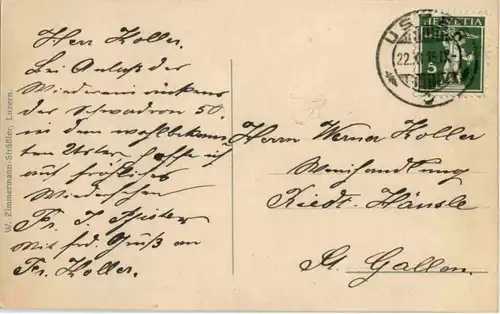 Herr Koller.
Bei Anlaß der
Wiedereinrückens
der Schwadron 50.
in dem wohlbekann-
ten Uster, hoffe ich
auf fröhliches
Wiedersehen
Fr. J. Pfister
Mit frd. Gruß an
Fr. Koller.
W. Zimmermann-Sträßler, Luzern.
HELVETIA
5
22.XI.15.IX
Herrn Werner Koller
Weinhandlung
Riedt-Häusle
St. Gallen.